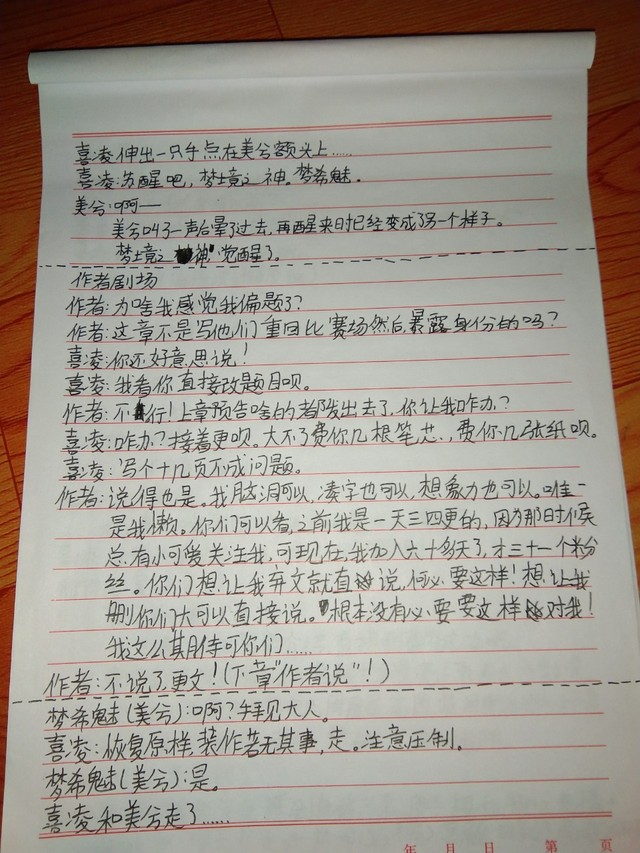 喜凌伸出一只手点在美兮额头上……
喜凌:苏醒吧,梦境之神。梦希魅。
美兮:啊——
美兮叫了一声后晕了过去,再醒来时已经变成了另一个样子。
梦境之"神"觉醒了。
作者剧场
作者:为啥我感觉我偏题了?
作者:这章不是写他们重回比赛场然后暴露身份的吗?
喜凌:你还好意思说!
喜凌:我看你直接改题目呗。
作者:不行!上章预告啥的都发出去了,你让我咋办?
喜凌:咋办?接着更呗。大不了费你几根笔芯,费你几张纸呗。
喜凌:写个十几页不成问题。
作者:说得也是。我脑洞可以,凑字也可以,想象力也可以。唯一
是我懒。你们可以看,之前我是一天三四更的,因为那时候
总有小可爱关注我,可现在,我加入六十多天了,才三十一个粉
丝。你们想让我弃文就直说,何必要这样!想让我
删你们大可以直接说。根本没有必要要这样对我!
我这么期待可你们……
作者:不说了更文!(下章"作者说"!)
梦希魅(美兮):啊?拜见大人。
喜凌:恢复原样,装作若无其事,走。注意压制。
梦希魅(美兮):是。
喜凌和美兮走了……
年 月 日 第 页